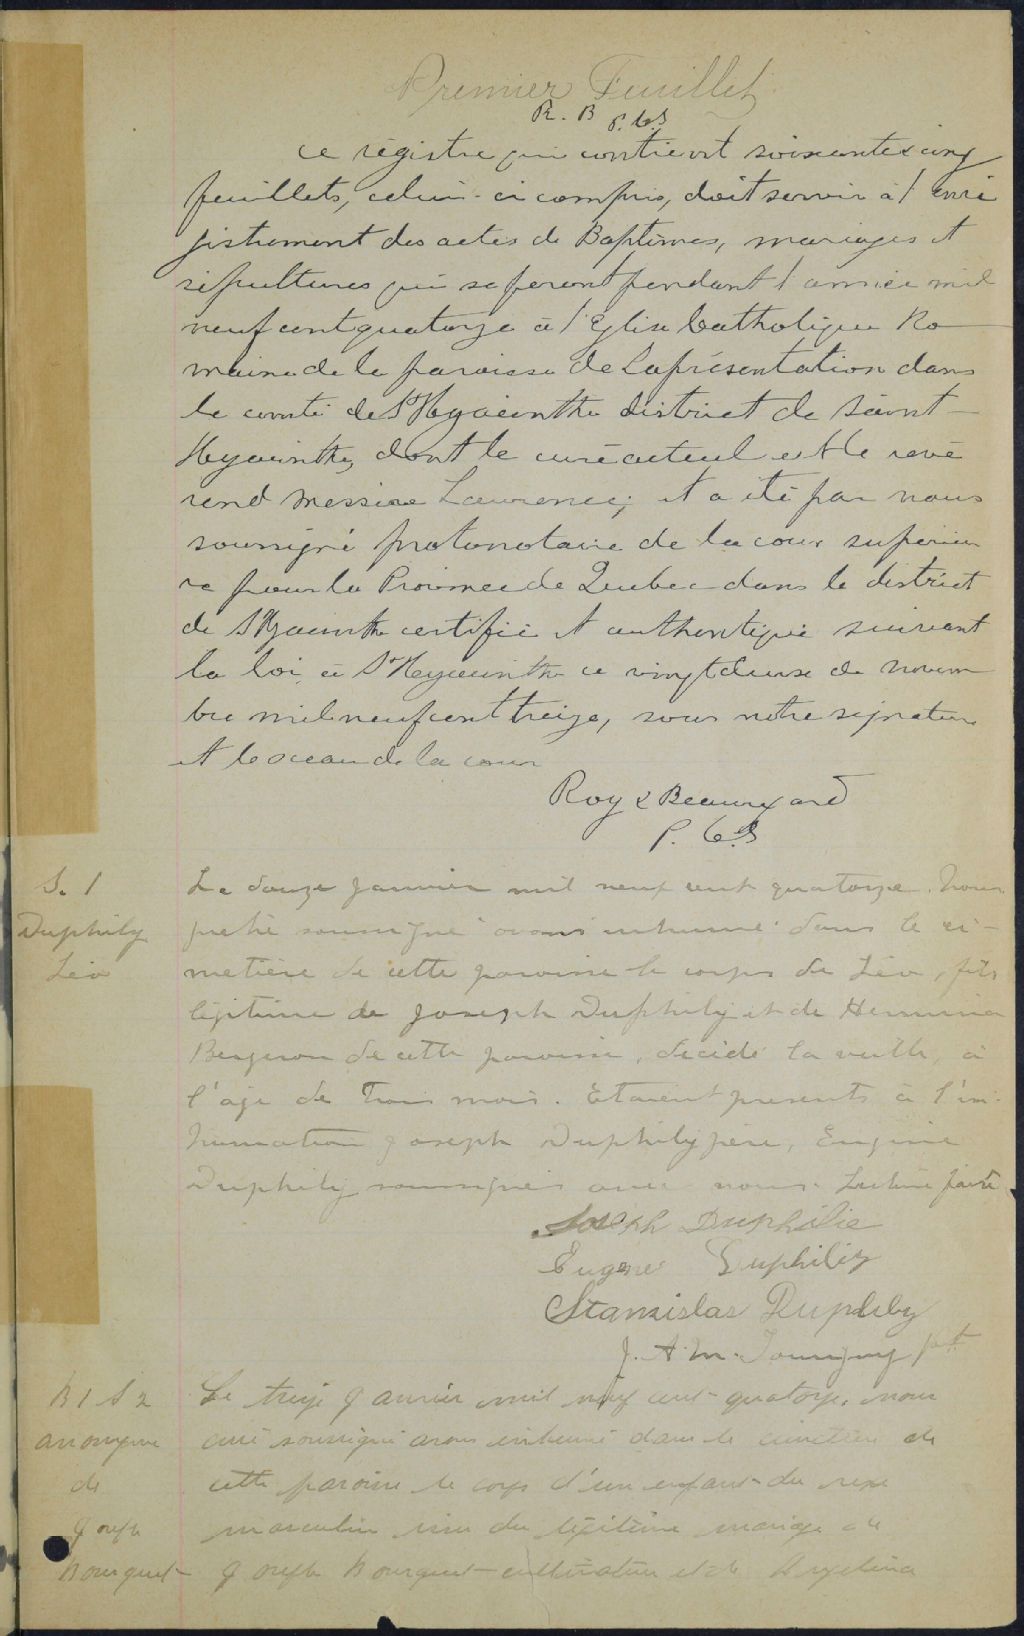 Premier Feuillet
R. B P.C.S
Ce régistre qui contient soixante & cinq
feuillets, celui-ci compris, doit servir à l'enré
gistrement des actes de Baptêmes, mariages et
sépultures qui se feront pendant l'année mil
neuf cent quatorze à l'Eglise Catholique Ro
maine de la paroisse de Laprésentation dans
le comté de St Hyacinthe district de Saint-
Hyacinthe, dont le curé actuel est le révé
rend Messire Laurence; et a été par nous
soussigné protonotaire de la cour supérieu
re pour la Province de Québec dans le district
de St Hyacinthe certifié et authentiqué suivant
la loi, à St Hyacinthe ce vingt deux de novem
bre mil neuf cent treize, sous notre signature
et le sceau de la cour
Roy & Beauregard
P. C. S
S. 1
Duphily
Léo
Le douze janvier mil neuf cent quatorze. Nous
prêtre soussigné avons inhumé dans le ci-
metière de cette paroisse le corps de Léo, fils
légitime de Joseph Duphily et de Hermina
Bergeron de cette paroisse, décédé la veille, à
l'age de trois mois. Etaient présents à l'in-
humation Joseph Duphily père, Eugène
Duphily soussignés avec nous. Lecture faite
Joseph Duphilie
Eugène Duphiliy
Stanislas Duphily
J. A. M. pst
B 1 S 2
anonyme
de
Joseph
Bourquet
Le treize Janvier mil neuf cent quatorze, nous
curé soussigné avons inhumé dans le cimetière de
cette paroisse le corps d'un enfant du sexe
masculin issu du légitime mariage de
Joseph Bourquet cultivateur et de Angelina